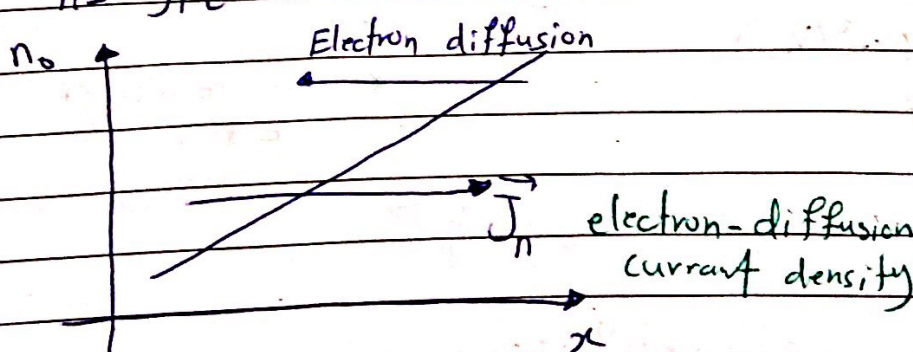 n₀
Electron diffusion
J⃗n electron-diffusion
currant density
x